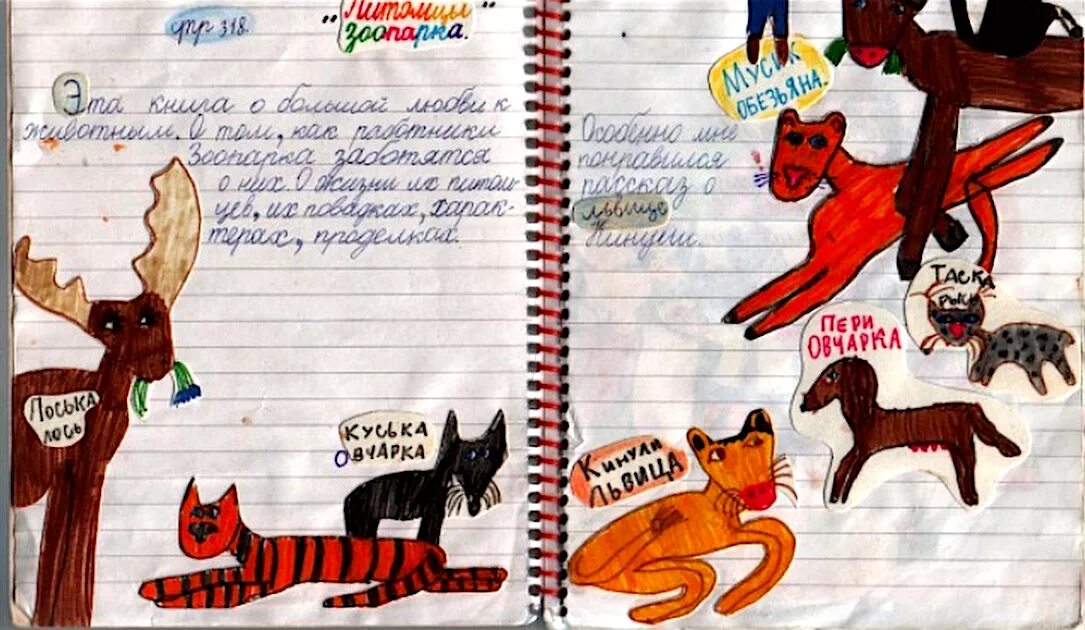 стр 318.
"Питомцы"
зоопарка.
Эта книга о большой любви к
животным. О том, как работники
Зоопарка заботятся
о них. О жизни их питом-
цев, их повадках, харак-
терах, проделках.
Лоська
лось
Куська
овчарка
Мусик
обезьяна.
Особенно мне
понравился
рассказ о
львице
Кинули.
Таска
рысь
Пери
овчарка
Кинули
львица